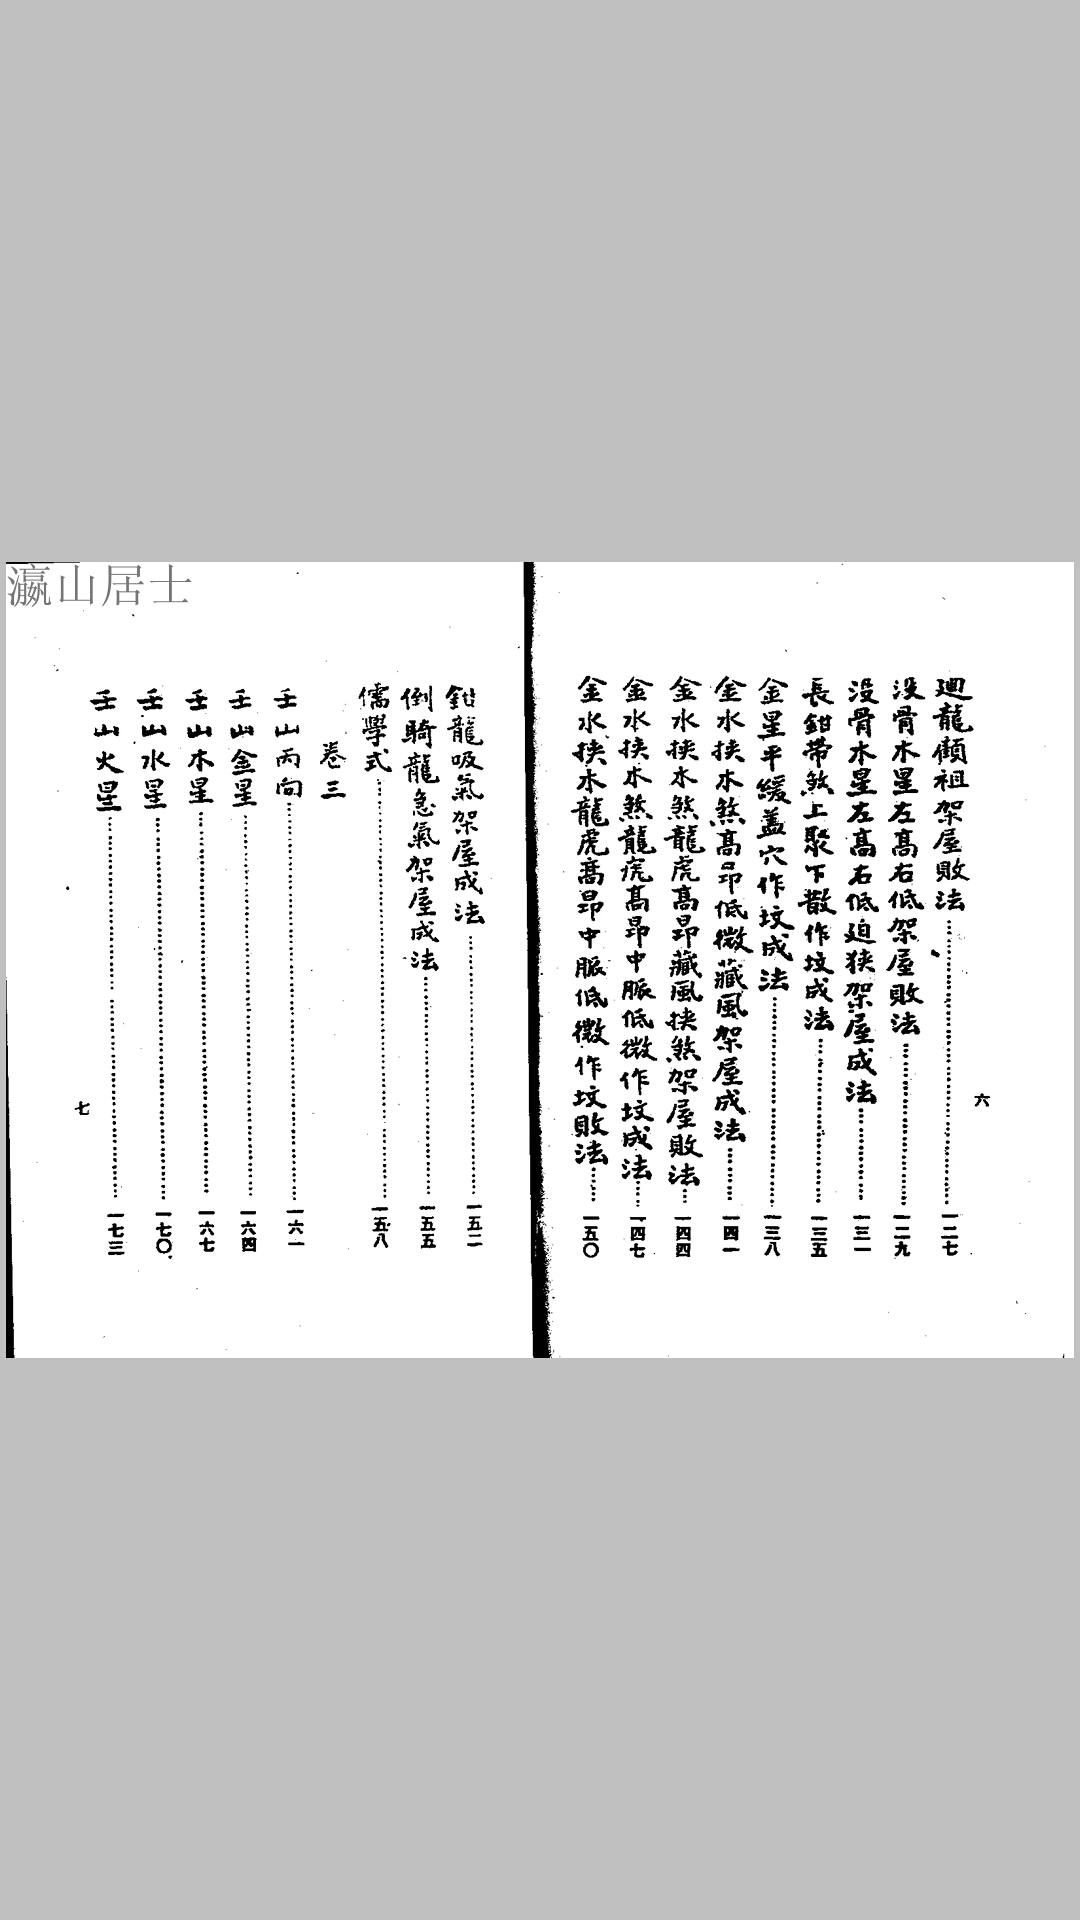 瀛山居士
廻龍顧祖架屋敗法……一二七
没骨水星左髙右低架屋敗法……一二九
没骨水星左髙右低廹狹架屋成法……一三一
長鉗帶煞上聚下散作坟成法……一三五
金星平緩蓋穴作坟成法……一三八
金水挟水煞髙昻低微藏風架屋成法……一四一
金水挟水煞龍虎髙昻藏風挟煞架屋敗法……一四四
金水挟水煞龍虎髙昻中脈低微作坟成法……一四七
金水挟水龍虎髙昻中脈低微作坟敗法……一五〇
六
鉗龍吸氣架屋成法……一五二
倒騎龍急氣架屋成法……一五五
儒學式……一五八
卷三
壬山丙向……一六一
壬山金星……一六四
壬山木星……一六七
壬山水星……一七〇
壬山火星……一七三
七